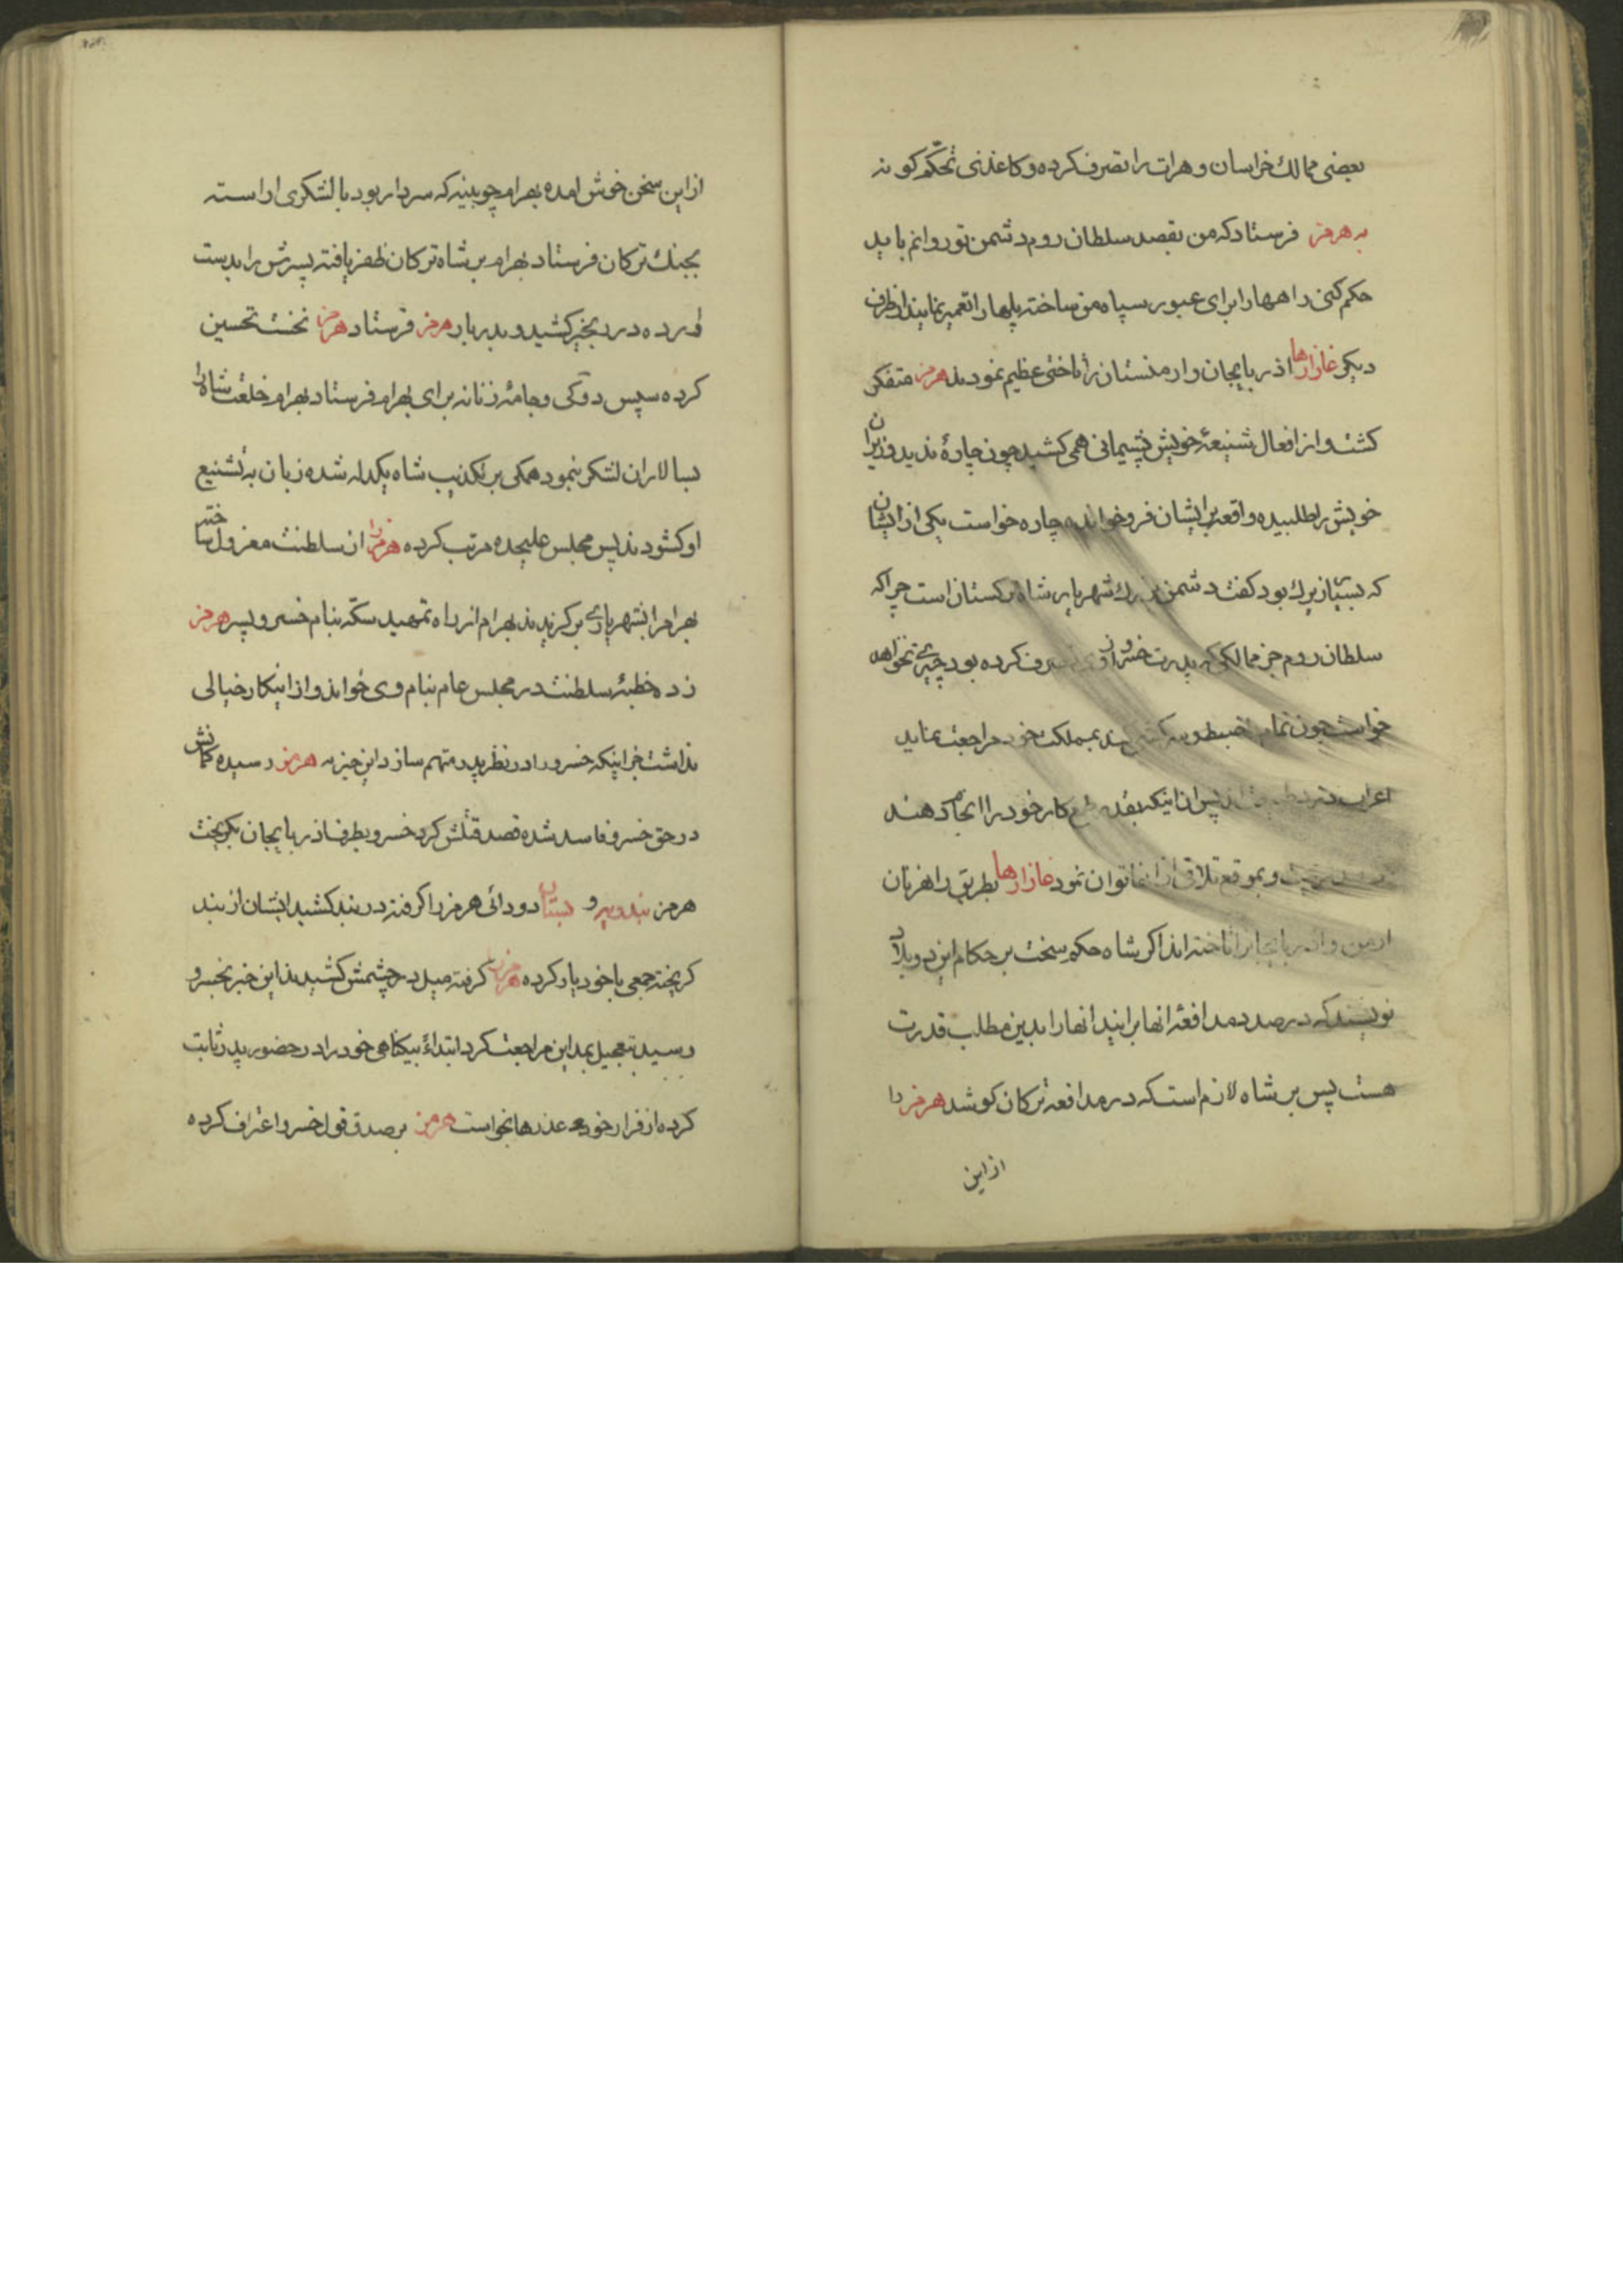 بعضی ممالك خراسان و هرات را تصرف کرده و کاغذی تحکّم کونه
به هرمز فرستاد که من بقصد سلطان روم دشمن تو روانم باید
حکم کنی راهها را برای عبور سپاه من ساخته پلها را تعمیر نمایند از طرف
دیکر غازارها اذربایجان و ارمنستان را تاختی عظیم نمودند هرمز متفکر
کشته و از افعال شنیعهٔ خویش پشیمانی همی کشید چون چارهٔ ندید وزیران
خویش را طلبیده واقعه برایشان فروخوانده چاره خواست یکی از ایشان
که بسیار زیرك بود کفت دشمن بزرك شهریار شاه ترکستان است چرا که
سلطان روم جز ممالکی که پدرت خسرو از وی تصرف کرده بود چیزی نخواهد
خواست چون تمام ضبط و بمملکت خود مراجعت نماید
اعراب پس از اینکه بقدر طمع کار خود را انجام دهند
و بموقع تلافی از انها توان نمود غازارها بطریق راهزنان
ارمن و اذربایجان را تاخته اند اکر شاه حکم سخت بر حکام این دو بلاد
نویسند که در صدد مدافعهٔ انها برایند انها را بدین مطلب قدرت
هست پس بر شاه لازم است که در مدافعه ترکان کوشد هرمز را
از این
از این سخن خوش امده بهرام چوبینه که سردار بود با لشکری اراسته
بجنك ترکان فرستاد بهرام بر شاه ترکان ظفر یافته پسرش را بدست
اورده در زنجیر کشید و بدربار هرمز فرستاد هرمز نخست تحسین
کرده سپس دوکی و جامهٔ زنانه برای بهرام فرستاد بهرام خلعت شاه را
بسالاران لشکر بنمود همکی بر تکذیب شاه یکدله شده زبان به تشنیع
او کشودند پس مجلس علیحده مرتب کرده هرمز را از سلطنت معزول ساخته
بهرام را بشهریاری برکزیدند بهرام از راه تمهید سکّه بنام خسرو پسر هرمز
زده خطبهٔ سلطنت در مجلس عام بنام وی خواند و از اینکار خیالی
نداشت جز اینکه خسرو را در نظر پدر متهم سازد این خبر به هرمز رسیده کمانش
در حق خسرو فاسد شده قصد قتلش کرد خسرو بطرف اذربایجان بکریخت
هرمز بندویه و بستان دو دائی هرمز را کرفته در بند کشید ایشان از بند
کریخته جمعی با خود یار کرده هرمز را کرفته میل در چشمش کشیدند این خبر بخسرو
رسید بتعجیل بمداین مراجعت کرد ابتداءً بیکناهی خود را در حضور پدر ثابت
کرده از فرار خود عذرها بخواست هرمز بر صدق قول خسرو اعتراف کرده